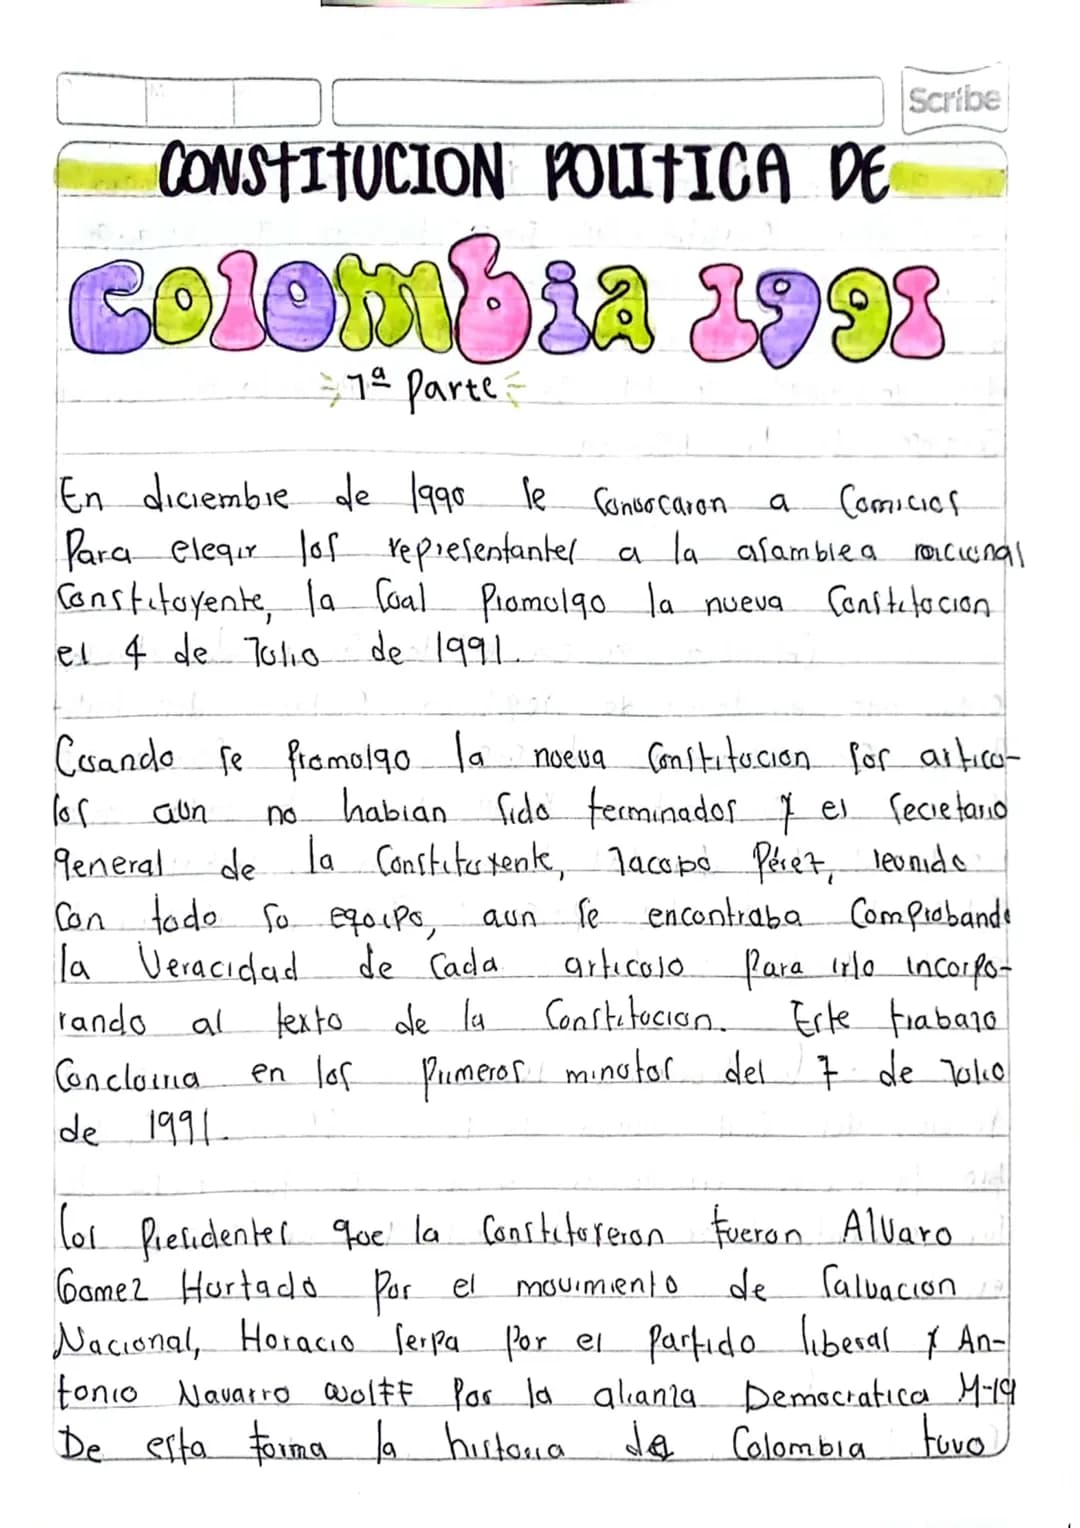 Scribe
CONSTITUCION POLITICA DE
Colombia 1991
1ª Parte
En diciembre de 1990 se convocaron a Comicios
Para elegir los representantes a la asamblea nacional
Constituyente, la Cual Promulgo la nueva Constitucion
el 4 de Julio de 1991.
Cuando se promulgo la nueva Constitucion sus articu-
los aun no habian sido terminados y el Secretario
general de la Constituyente, Jacobo Pérez, reunido
Con todo su equipo, aun se encontraba Comprobando
la Veracidad de Cada articulo Para irlo incorpo-
rando al texto de la Constitucion. Este trabajo
Concluiria en los Primeros minutos del 7 de Julio
de 1991.
los Presidentes que la Constituyeron fueron Alvaro
Gomez Hurtado Por el movimiento de Salvacion
Nacional, Horacio Serpa Por el Partido liberal y An-
tonio Navarro Wolff Por la alianza Democratica M-19
De esta forma la historia de Colombia tuvo